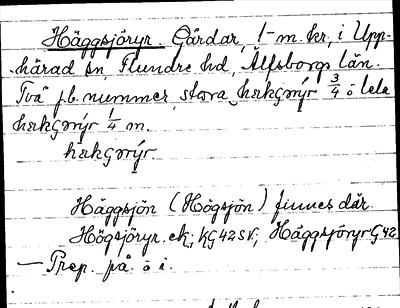 Häggsjöryr. Gårdar, 1 m. kr., i Upp-
härad sn, Flundre hd, Älfsborgs län.
Två jb. nummer, stora hæksrýr 3/4 o lela
hæksrýr 1/4 m.
hæksrýr.
Häggsjön (Högsjön) finnes där.
Högsjöryr. ek; KG42SV; HäggsjöryrG42
— Prep. på o i.